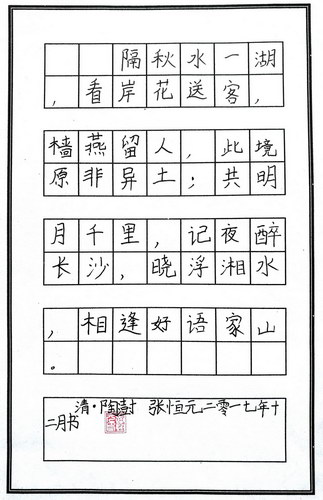 隔秋水一湖
，看岸花送客，
樯燕留人，此境
原非异土；共明
月千里，记夜醉
长沙，晓浮湘水
，相逢好语家山
。
清·陶澍 张恒元二零一七年十
二月书